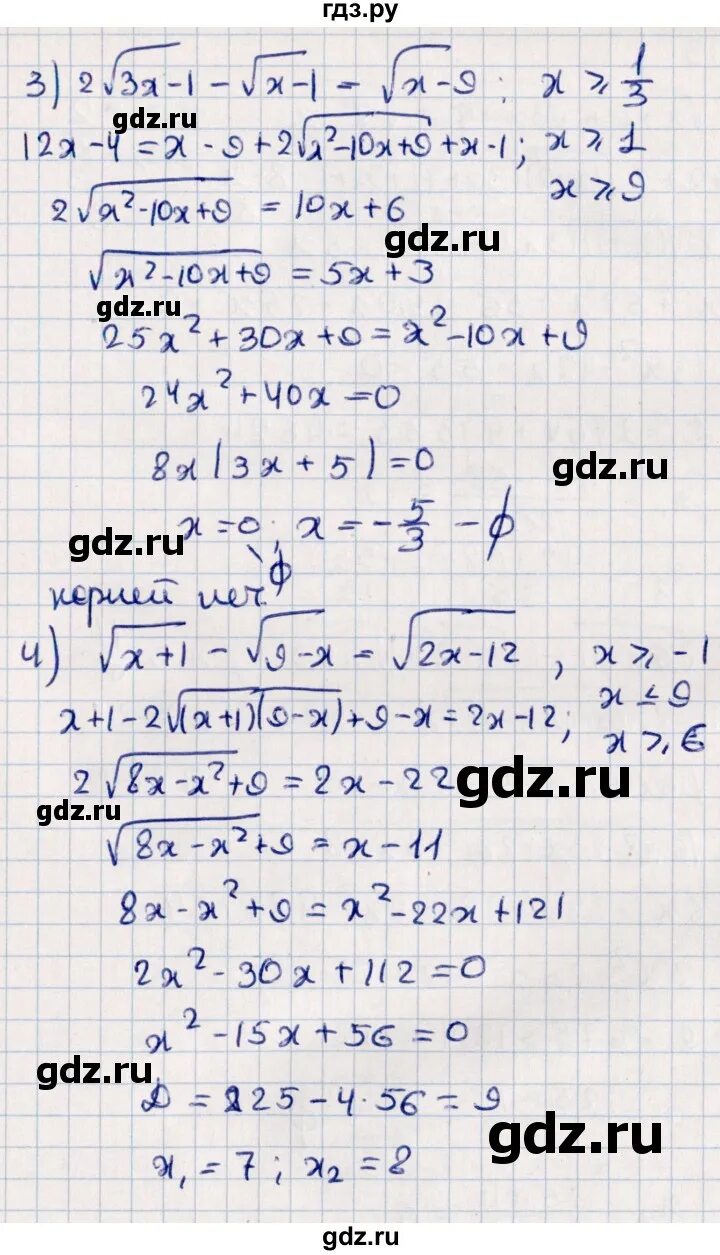 гдз.ру
3) 2√(3x-1) - √(x-1) = √(x-9) ; x ⩾ 1/3
gdz.ru
12x-4 = x-9+2√(x²-10x+9)+x-1; x ⩾ 1
x ⩾ 9
2√(x²-10x+9) = 10x+6
gdz.ru
√(x²-10x+9) = 5x+3
gdz.ru
25x²+30x+9=x²-10x+9
24x²+40x=0
8x(3x+5)=0
gdz.ru
x=0; x=-5/3 - ϕ
gdz.ru
ϕ
корней нет.
4) √(x+1) - √(9-x) = √(2x-12) , x ⩾ -1
x ≤ 9
x+1-2√((x+1)(9-x))+9-x=2x-12; x ⩾ 6
2√(8x-x²+9) = 2x-22
gdz.ru
gdz.ru
√(8x-x²+9) = x-11
8x-x²+9=x²-22x+121
2x²-30x+112=0
x²-15x+56=0
gdz.ru
D = 225-4·56=9
gdz.ru
x₁=7; x₂=8
gdz.ru